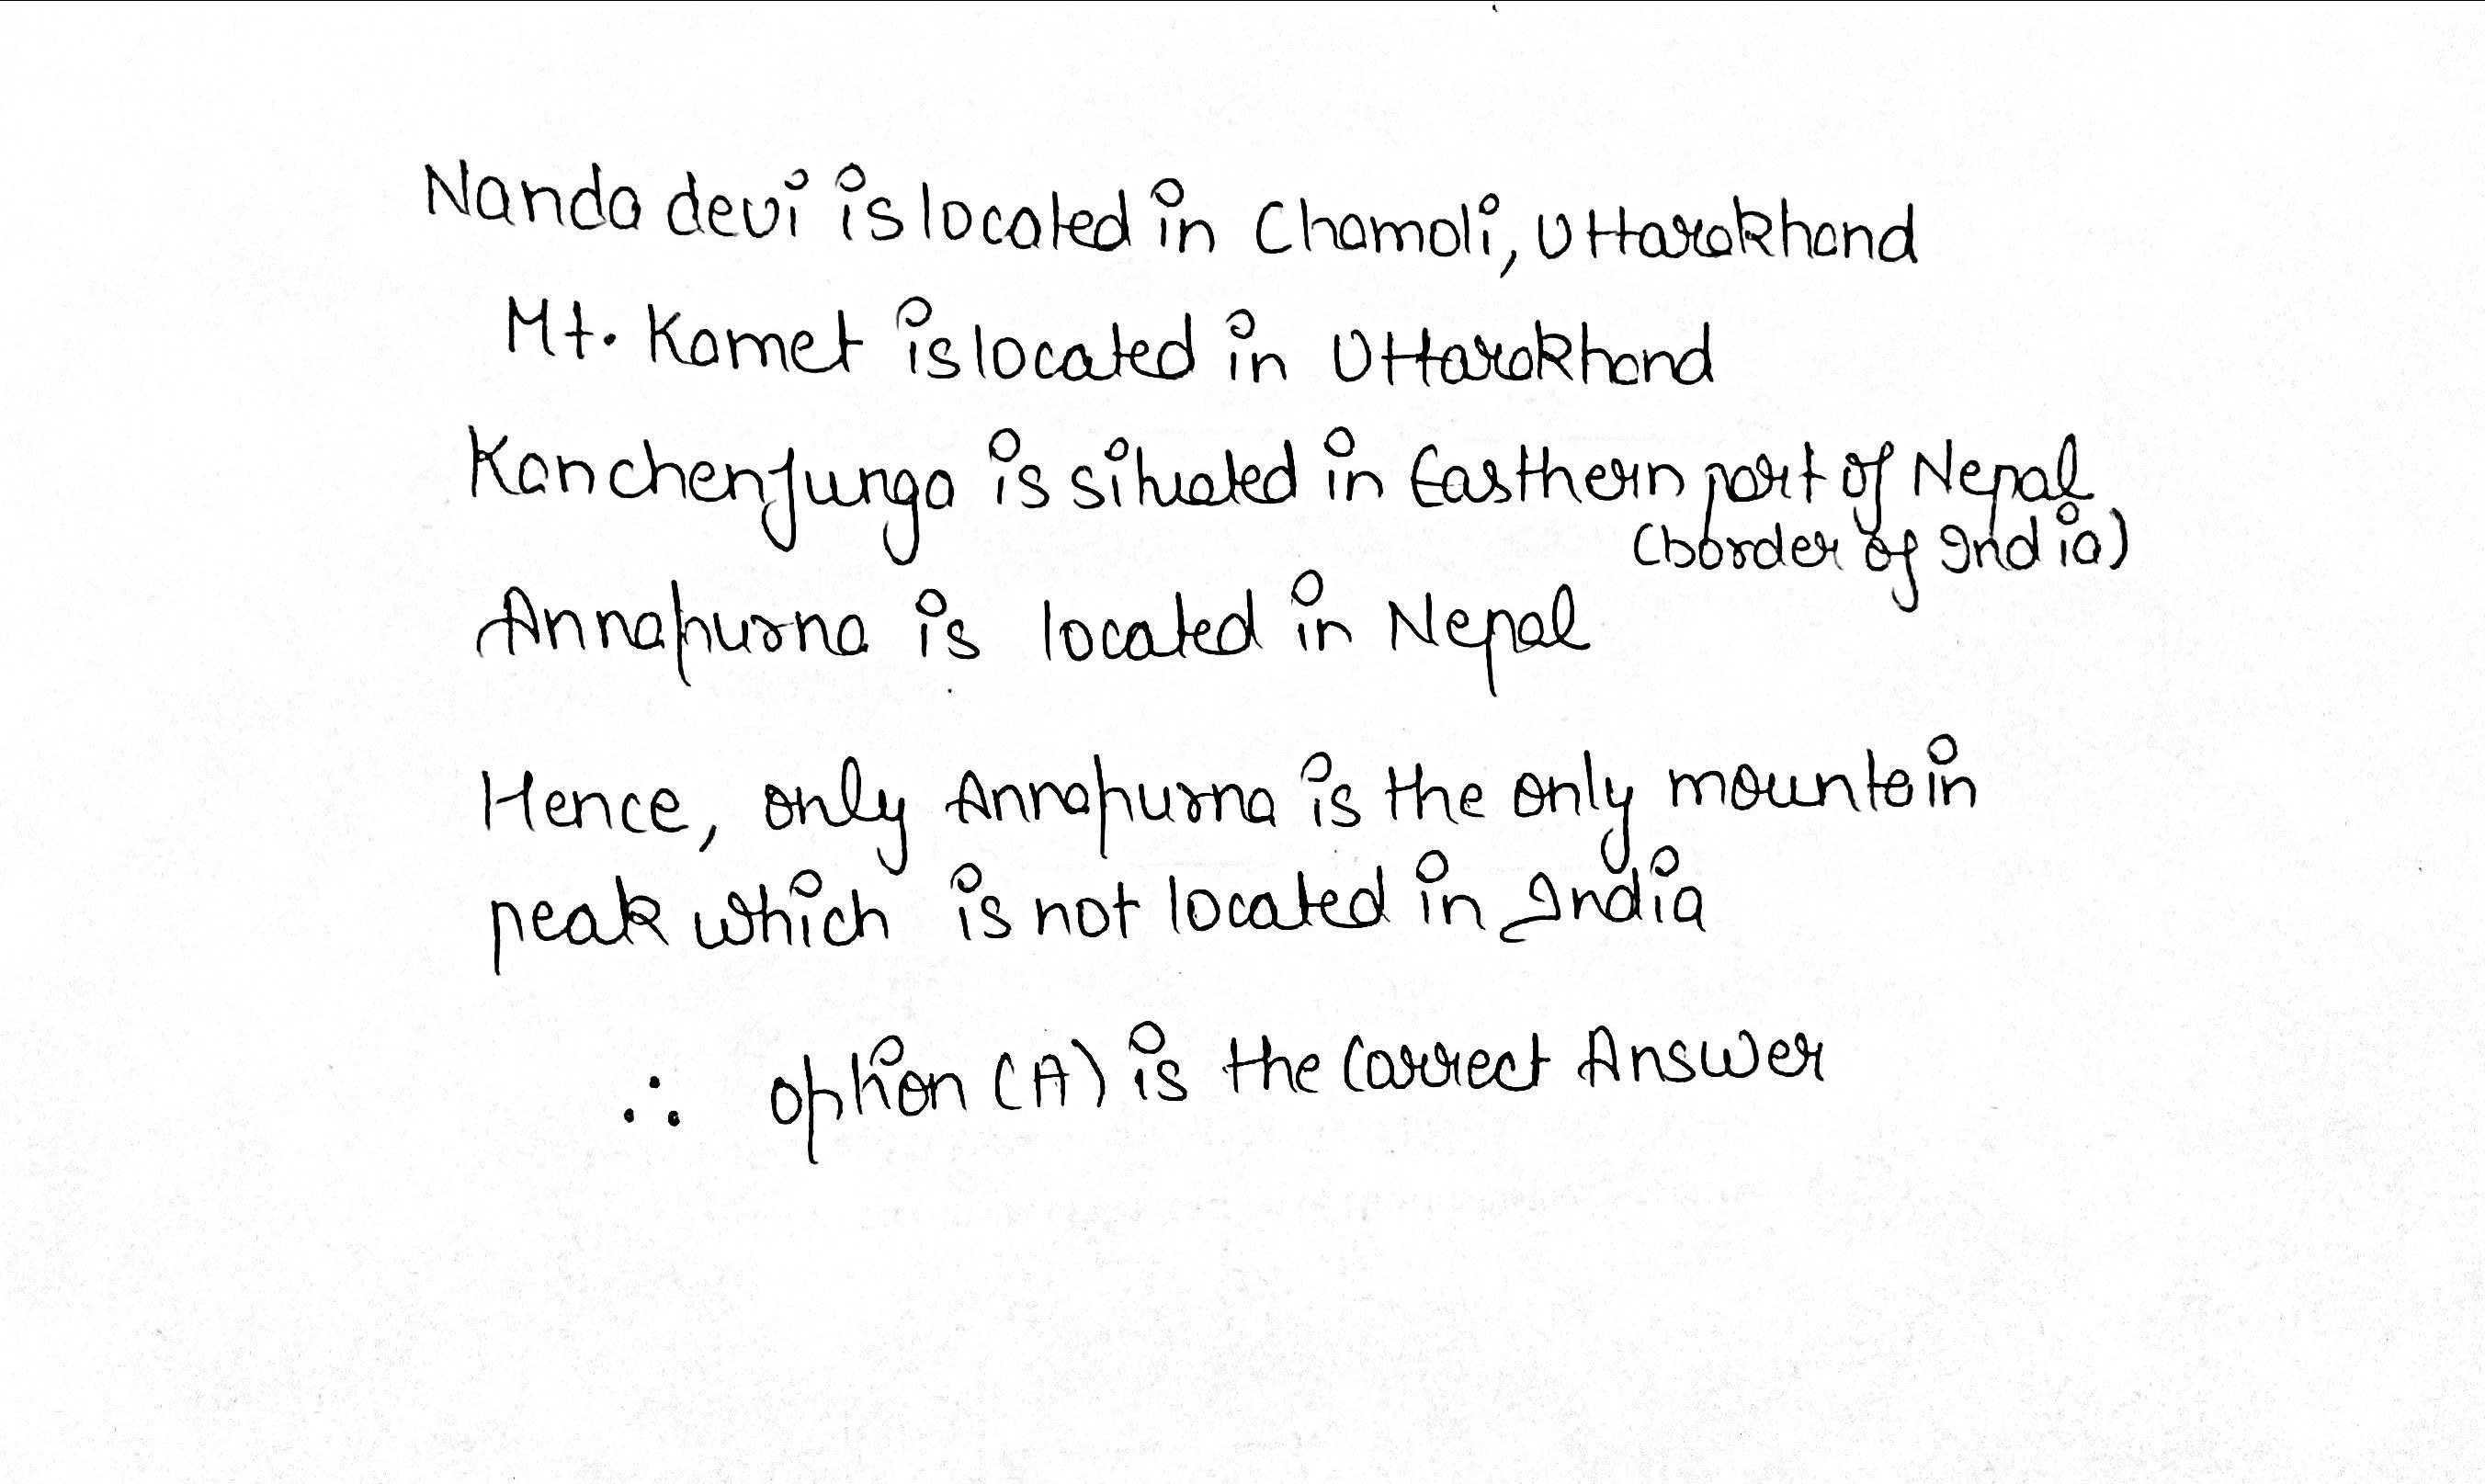 Nanda devi is located in Chamoli, Uttarakhand
Mt. Kamet is located in Uttarakhand
Kanchenjunga is situated in Easthern part of Nepal
(border of India)
Annapurna is located in Nepal
Hence, only Annapurna is the only mountain
peak which is not located in India
∴ option (A) is the Correct Answer